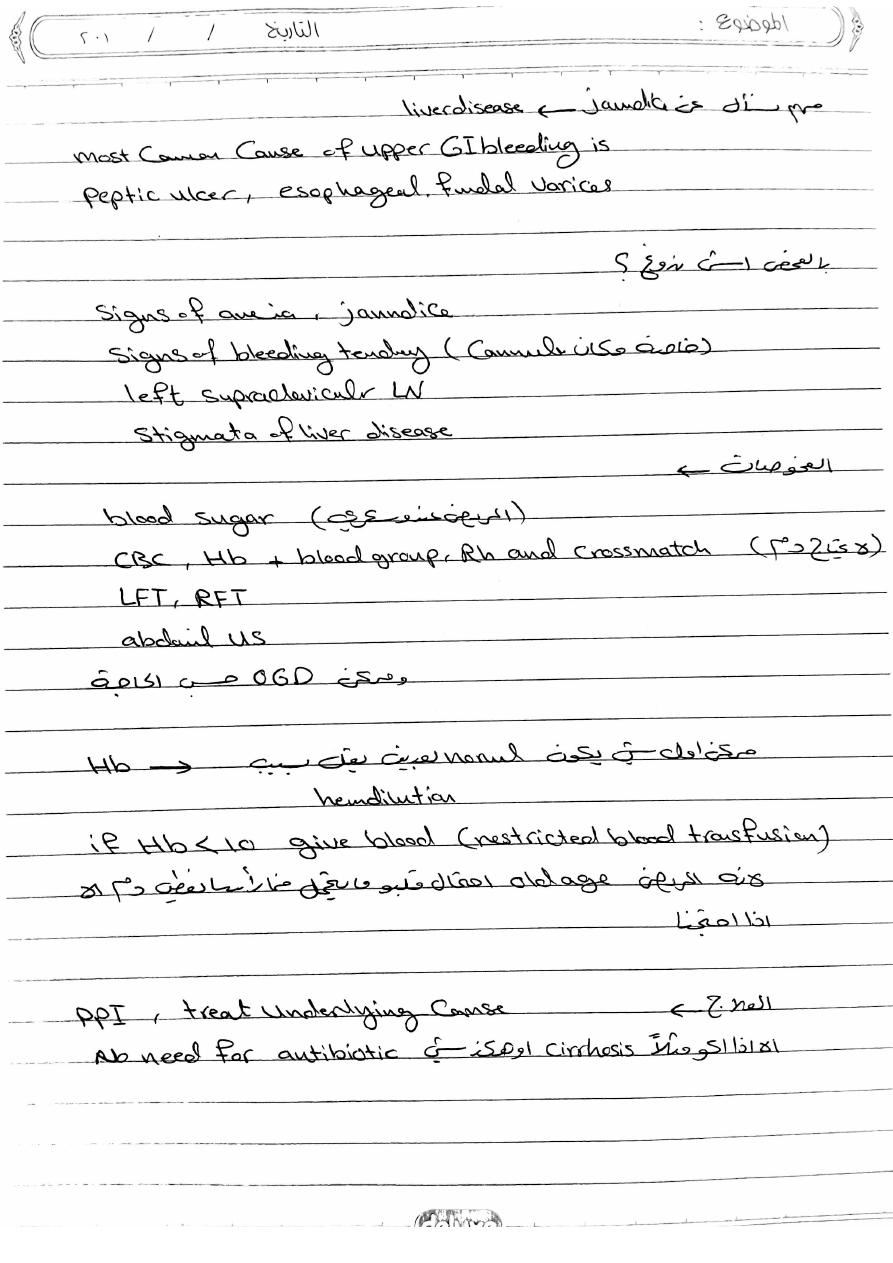 الموضوع :
التاريخ / / ٢٠١
مهم نسأل عن jaundice ← liver disease
most Common Cause of upper GI bleeding is
Peptic ulcer, esophageal. fundal varices
بالفحص اش نروح ؟
Signs of anemia , jaundice
Signs of bleeding tendency ( خاصة مكان Cannula)
left supraclavicular LN
Stigmata of liver disease
الفحوصات ←
blood sugar (المريض عنده)
CBC , Hb + blood group, Rh and crossmatch (لا يحتاج دم)
LFT, RFT
abdominal US
وممكن OGD حسب الحاجة
Hb → ممكن اول شي يكون normal بعدين يقل بسبب
hemdilution
if Hb < 10 give blood (restricted blood transfusion)
لانه المريض old age احتمال قلبو ما يتحمل دم الا
اذا احتجنا
العلاج ← PPI , treat underlying Cause
No need for antibiotic الا اذا اكو مثلاً cirrhosis او ممكن شي